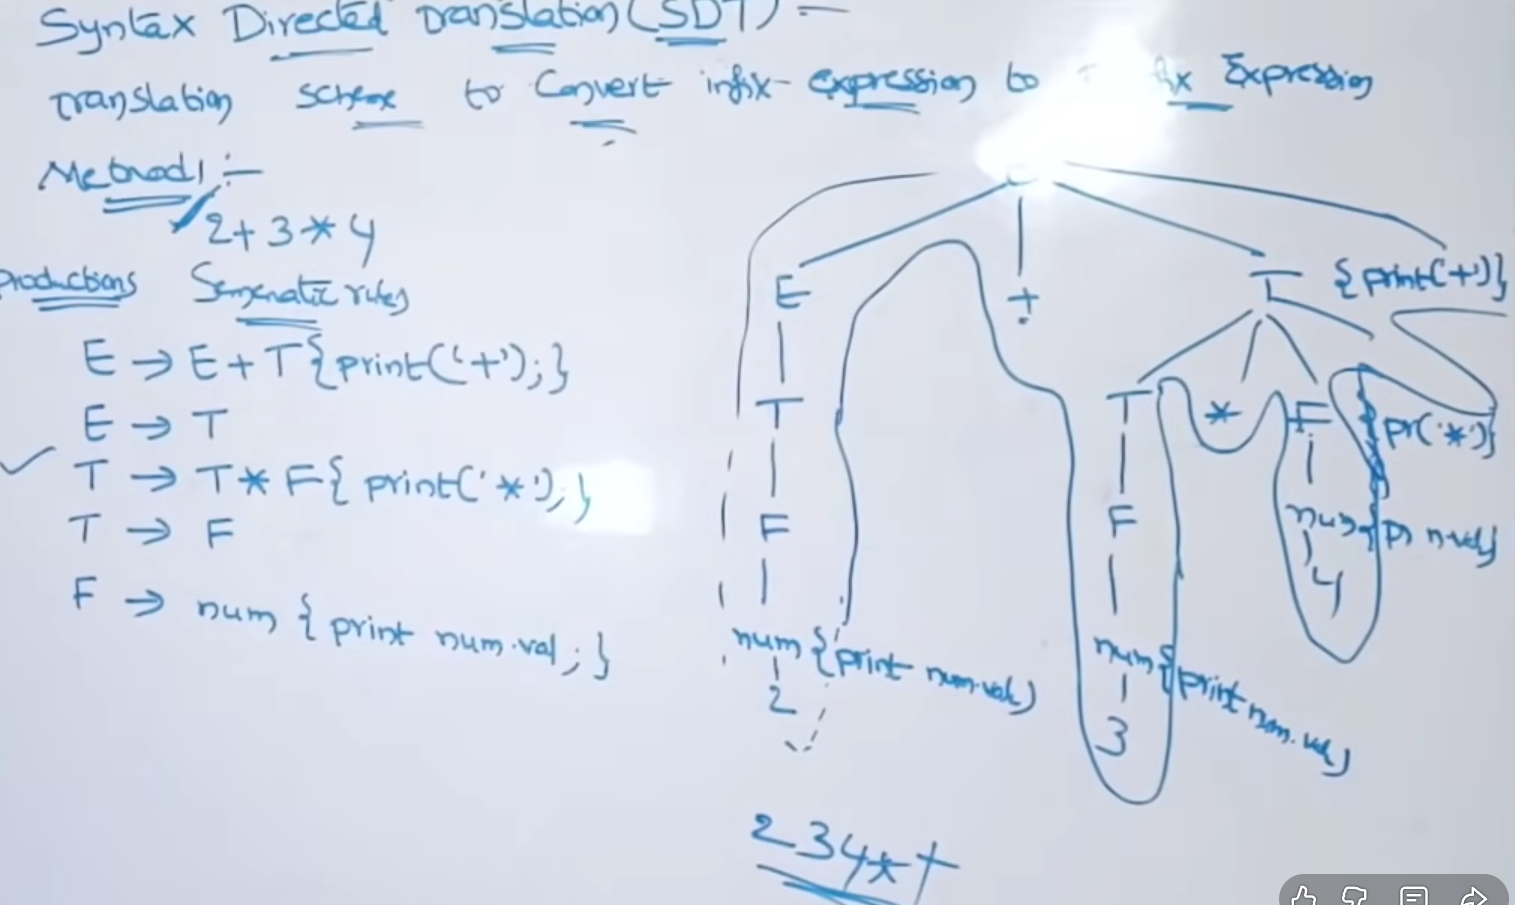 Syntax Directed Translation (SDT) :-
Translation scheme to Convert infix-expression to fix Expression
Method1 :-
2+3*4
Productions Semenatic rules
E → E + T {print('+');}
E → T
T → T * F { print('*'); }
T → F
F → num { print num.val ; }
E + T {print('+')}
T T * F {pr('*')}
F F num {p n.val}
4
num {print num.val} num {print num.val}
2 3
234*+